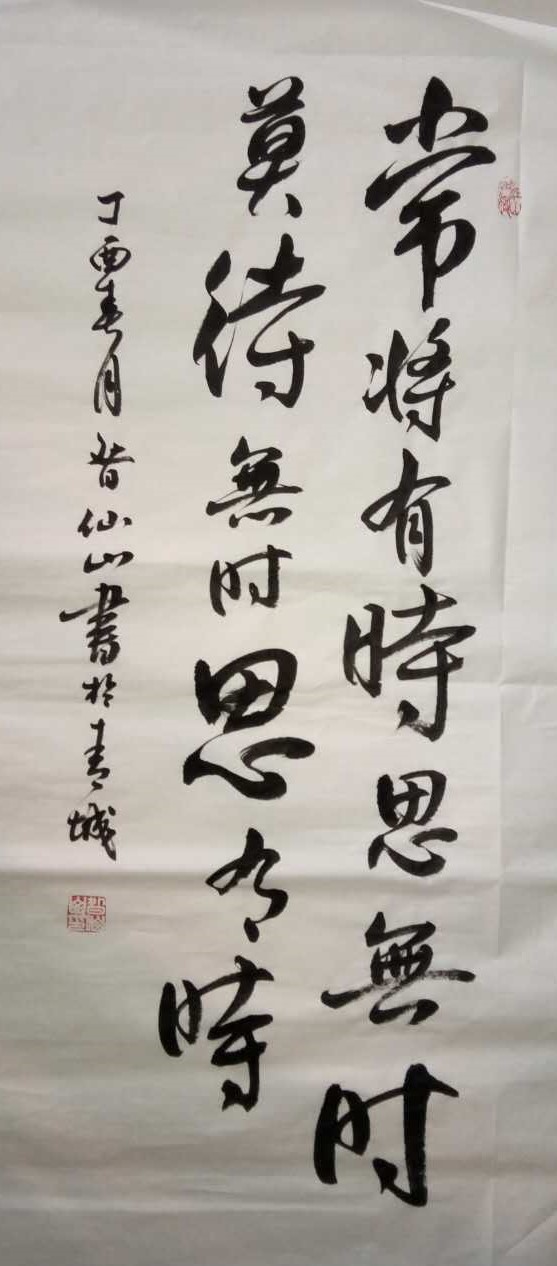 常将有時思無时
莫待無时思有時
丁酉春月昝仙山書於青城